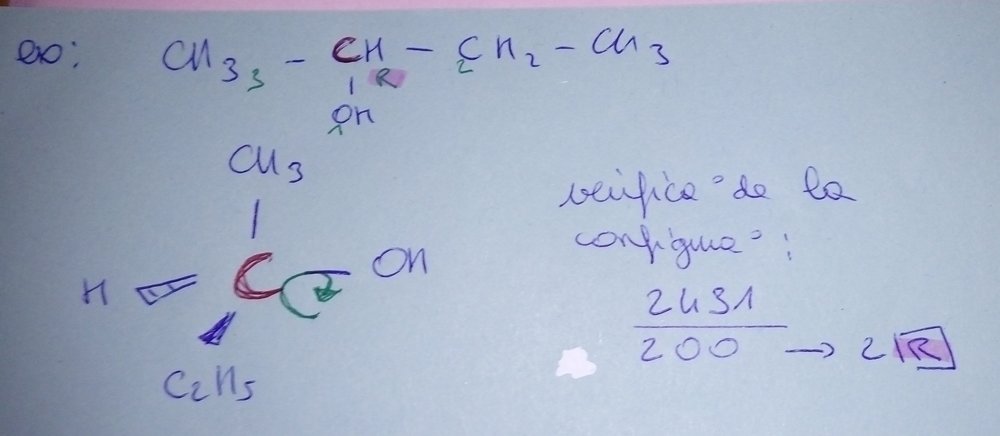 ex: CH3 3 - CH - CH2 - CH3
R 2
OH
1
CH3
H C OH
C2H5
vérifica° de la
configura° :
2431
200 → 2 R